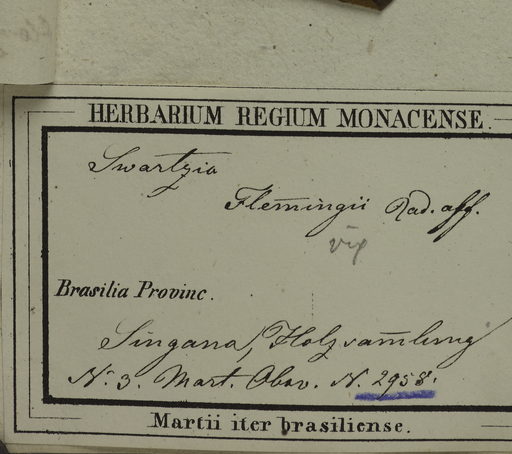 HERBARIUM REGIUM MONACENSE.
Swartzia
Flem̄ingii Rad. aff.
vix
Brasilia Provinc.
Singana, Holzsam̄lung
N. 3. Mart. Obsv. N. 2958.
Martii iter brasiliense.